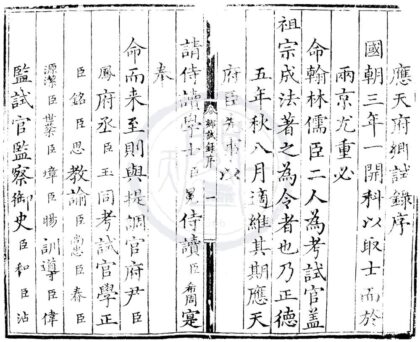 應天府鄉試錄序
國朝三年一開科以取士而於
兩京尤重必
命翰林儒臣二人為考試官蓋
祖宗成法著之為令者也乃正德
五年秋八月適維其期應天
府臣先期以
鄉試錄序 一
請侍讀學士臣侍讀臣希周寔
奉
命而来至則與提調官府尹臣
鳳府丞臣玉同考試官學正
臣銘臣思教諭臣臣春臣
臣世臣暐臣暘訓導臣偉
監試官監察御史臣和臣沾